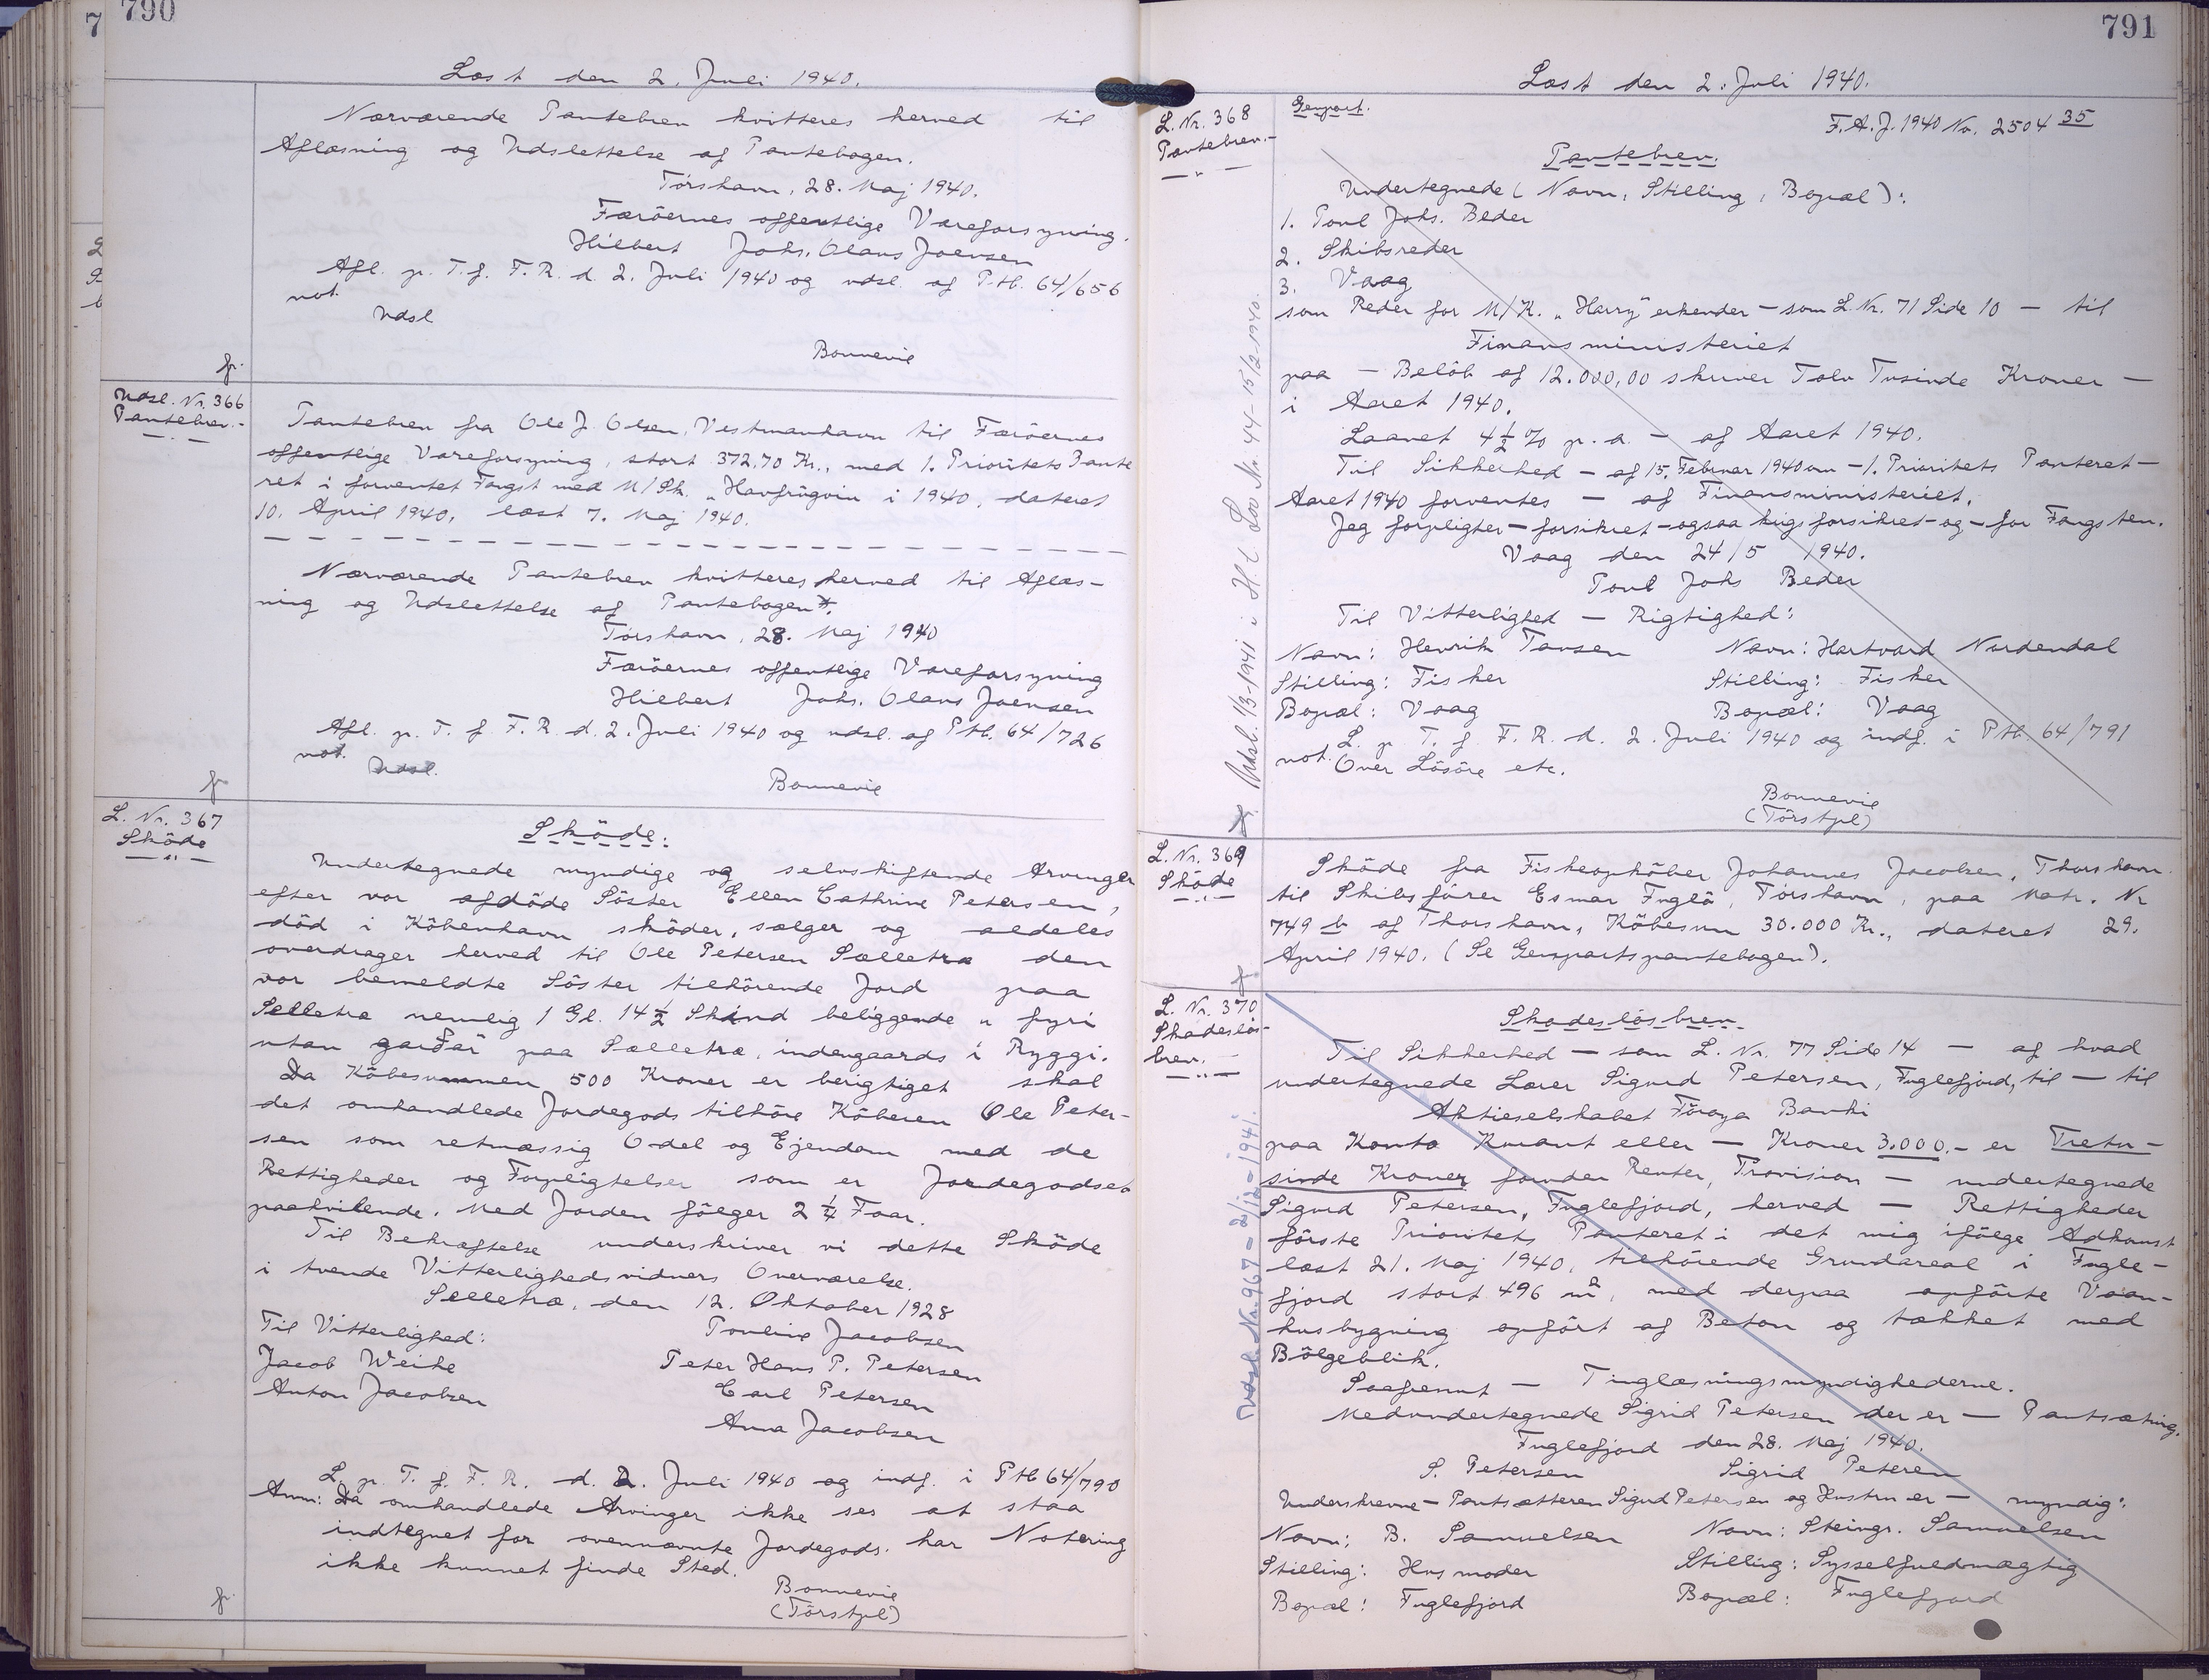 790
Læst den 2. Juli 1940.
Nærværende Pantebrev kvitteres herved til
Aflæsning og Udslettelse af Pantebogen.
Tórshavn, 28. Maj 1940.
Færöernes offentlige Vareforsyning.
Hilbert Johs. Olaus Joensen
Afl. p. T. f. F. R. d. 2. Juli 1940 og udsl. af Ptb. 64/656
not.
Udsl
Bonnevie
Udsl. Nr. 366
Pantebrev.-
Pantebrev fra Ole J. Olsen, Vestmanhavn til Færöernes
offentlige Vareforsyning, stort 372,70 Kr., med 1. Prioritets Pante
ret i forventet Fangst med M/Sk. „Havfrúgvin i 1940, dateret
10. April 1940, læst 7. Maj 1940.
Nærværende Pantebrev kvitteres herved til Aflæs-
ning og Udslettelse af Pantebogen.
Tórshavn, 28. Maj 1940
Færöernes offentlige Vareforsyning
Hilbert Johs. Olaus Joensen
Afl. p. T. f. F. R. d. 2. Juli 1940 og udsl. af Ptb. 64/726
not.
Udsl.
Bonnevie
L. Nr. 367
Sköde
Sköde:
Undertegnede myndige og selvskiftende Arvinger
efter vor afdöde Söster Ellen Cathrine Petersen,
död i Köbenhavn sköder, sælger og aldeles
overdrager herved til Ole Petersen Sælletræ den
vor bemeldte Söster tilhörende Jord paa
Selletræ nemlig 1 Gl. 14½ Skind beliggende „ fyri
utan garðar paa Sælletræ, indengaards i Ryggi.
Da Köbesummen 500 Kroner er berigtiget skal
det omhandlede Jordegods tilhöre Köberen Ole Peter-
sen som retmæssig Odel og Ejendom med de
Rettigheder og Forpligtelser som er Jordegodset
paahvilende. Med Jorden fölger 2¼ Faar.
Til Bekræftelse underskriver vi dette Sköde
i tvende Vitterlighedsvidners Overværelse.
Selletræ, den 12. Oktober 1928
Til Vitterlighed: Pouline Jacobsen
Jacob Weihe Peter Hans P. Petersen
Anton Jacobsen Carl Petersen
Anna Jacobsen
L. p. T. f. F. R. d. 2. Juli 1940 og indf. i Ptb 64/790
Anm: Da omhandlede Arvinger ikke ses at staa
indtegnet for ovennævnte Jordegods, har Notering
ikke kunnet finde Sted.
Bonnevie
(Törstpl)
791
Læst den 2. Juli 1940.
L. Nr. 368
Pantebrev.-
Genpart.
F. A. J. 1940 Nr. 2504 35
Pantebrev.
Undertegnede (Navn, Stilling, Bopæl):
1. Poul Johs. Beder
2. Skibsreder
3. Vaag
som Reder for M/K. „Harry" erkender - som L. Nr. 71 Side 10 - til
Finansministeriet
paa - Belöb af 12.000,00 skriver Tolv Tusinde Kroner -
i Aaret 1940.
Laanet 4½ % p. a. - af Aaret 1940.
Til Sikkerhed - af 15. Februar 1940 om - 1. Prioritets Panteret -
Aaret 1940 forventes - af Finansministeriet.
Jeg forpligter - forsikret - ogsaa krigsforsikret - og - for Fangsten.
Vaag den 24/5 1940.
Poul Johs Beder
Til Vitterlighed - Rigtighed:
Navn: Henrik Tausen Navn: Hartvard Nordendal
Stilling: Fisker Stilling: Fisker
Bopæl: Vaag Bopæl: Vaag
L. p. T. f. F. R. d. 2. Juli 1940 og indf. i Ptb. 64/791
not. Over Lösöre etc.
Bonnevie
(Törstpl)
Udsl. 1/3-1941 i H. t. Lov Nr. 44-15/2 1940.
L. Nr. 369
Sköde
Sköde fra Fiskeopköber Johannes Jacobsen, Thorshavn
til Skibsförer Esmar Fuglö, Tórshavn, paa Matr. Nr
749 b af Thorshavn, Köbesum 30.000 Kr., dateret 29.
April 1940. (Se Genpartspantebogen).
L. Nr. 370
Skadeslös-
brev.-
Skadeslösbrev.
Til Sikkerhed - som L. Nr. 77 Side 14 - af hvad
undertegnede Lærer Sigurd Petersen, Fuglefjord, til - til
Aktieselskabet Föroya Banki
paa Konto Kurant eller - Kroner 3.000.- er Tretu-
sinde Kroner foruden Renter, Provision - undertegnede
Sigurd Petersen, Fuglefjord, herved - Rettigheder
förste Prioritets Panteret i det mig ifölge Adkomst
læst 21. Maj 1940, tilhörende Grundareal i Fugle-
fjord stort 496 m², med derpaa opförte Vaan-
husbygning opfört af Beton og tækket med
Bölgeblik.
Saafremt - Tinglæsningsmyndighederne.
Medundertegnede Sigrid Petersen der er - Pantsætning.
Fuglefjord den 28. Maj 1940.
S. Petersen Sigrid Peteren
Underskrevne - Pantsætteren Sigurd Petersen og Hustru er - myndig:
Navn: B. Samuelsen Navn: Steingr. Samuelsen
Stilling: Husmoder Stilling: Sysselfuldmægtig
Bopæl: Fuglefjord Bopæl: Fuglefjord
Udsl. Nr. 967 - 2/12-1941.